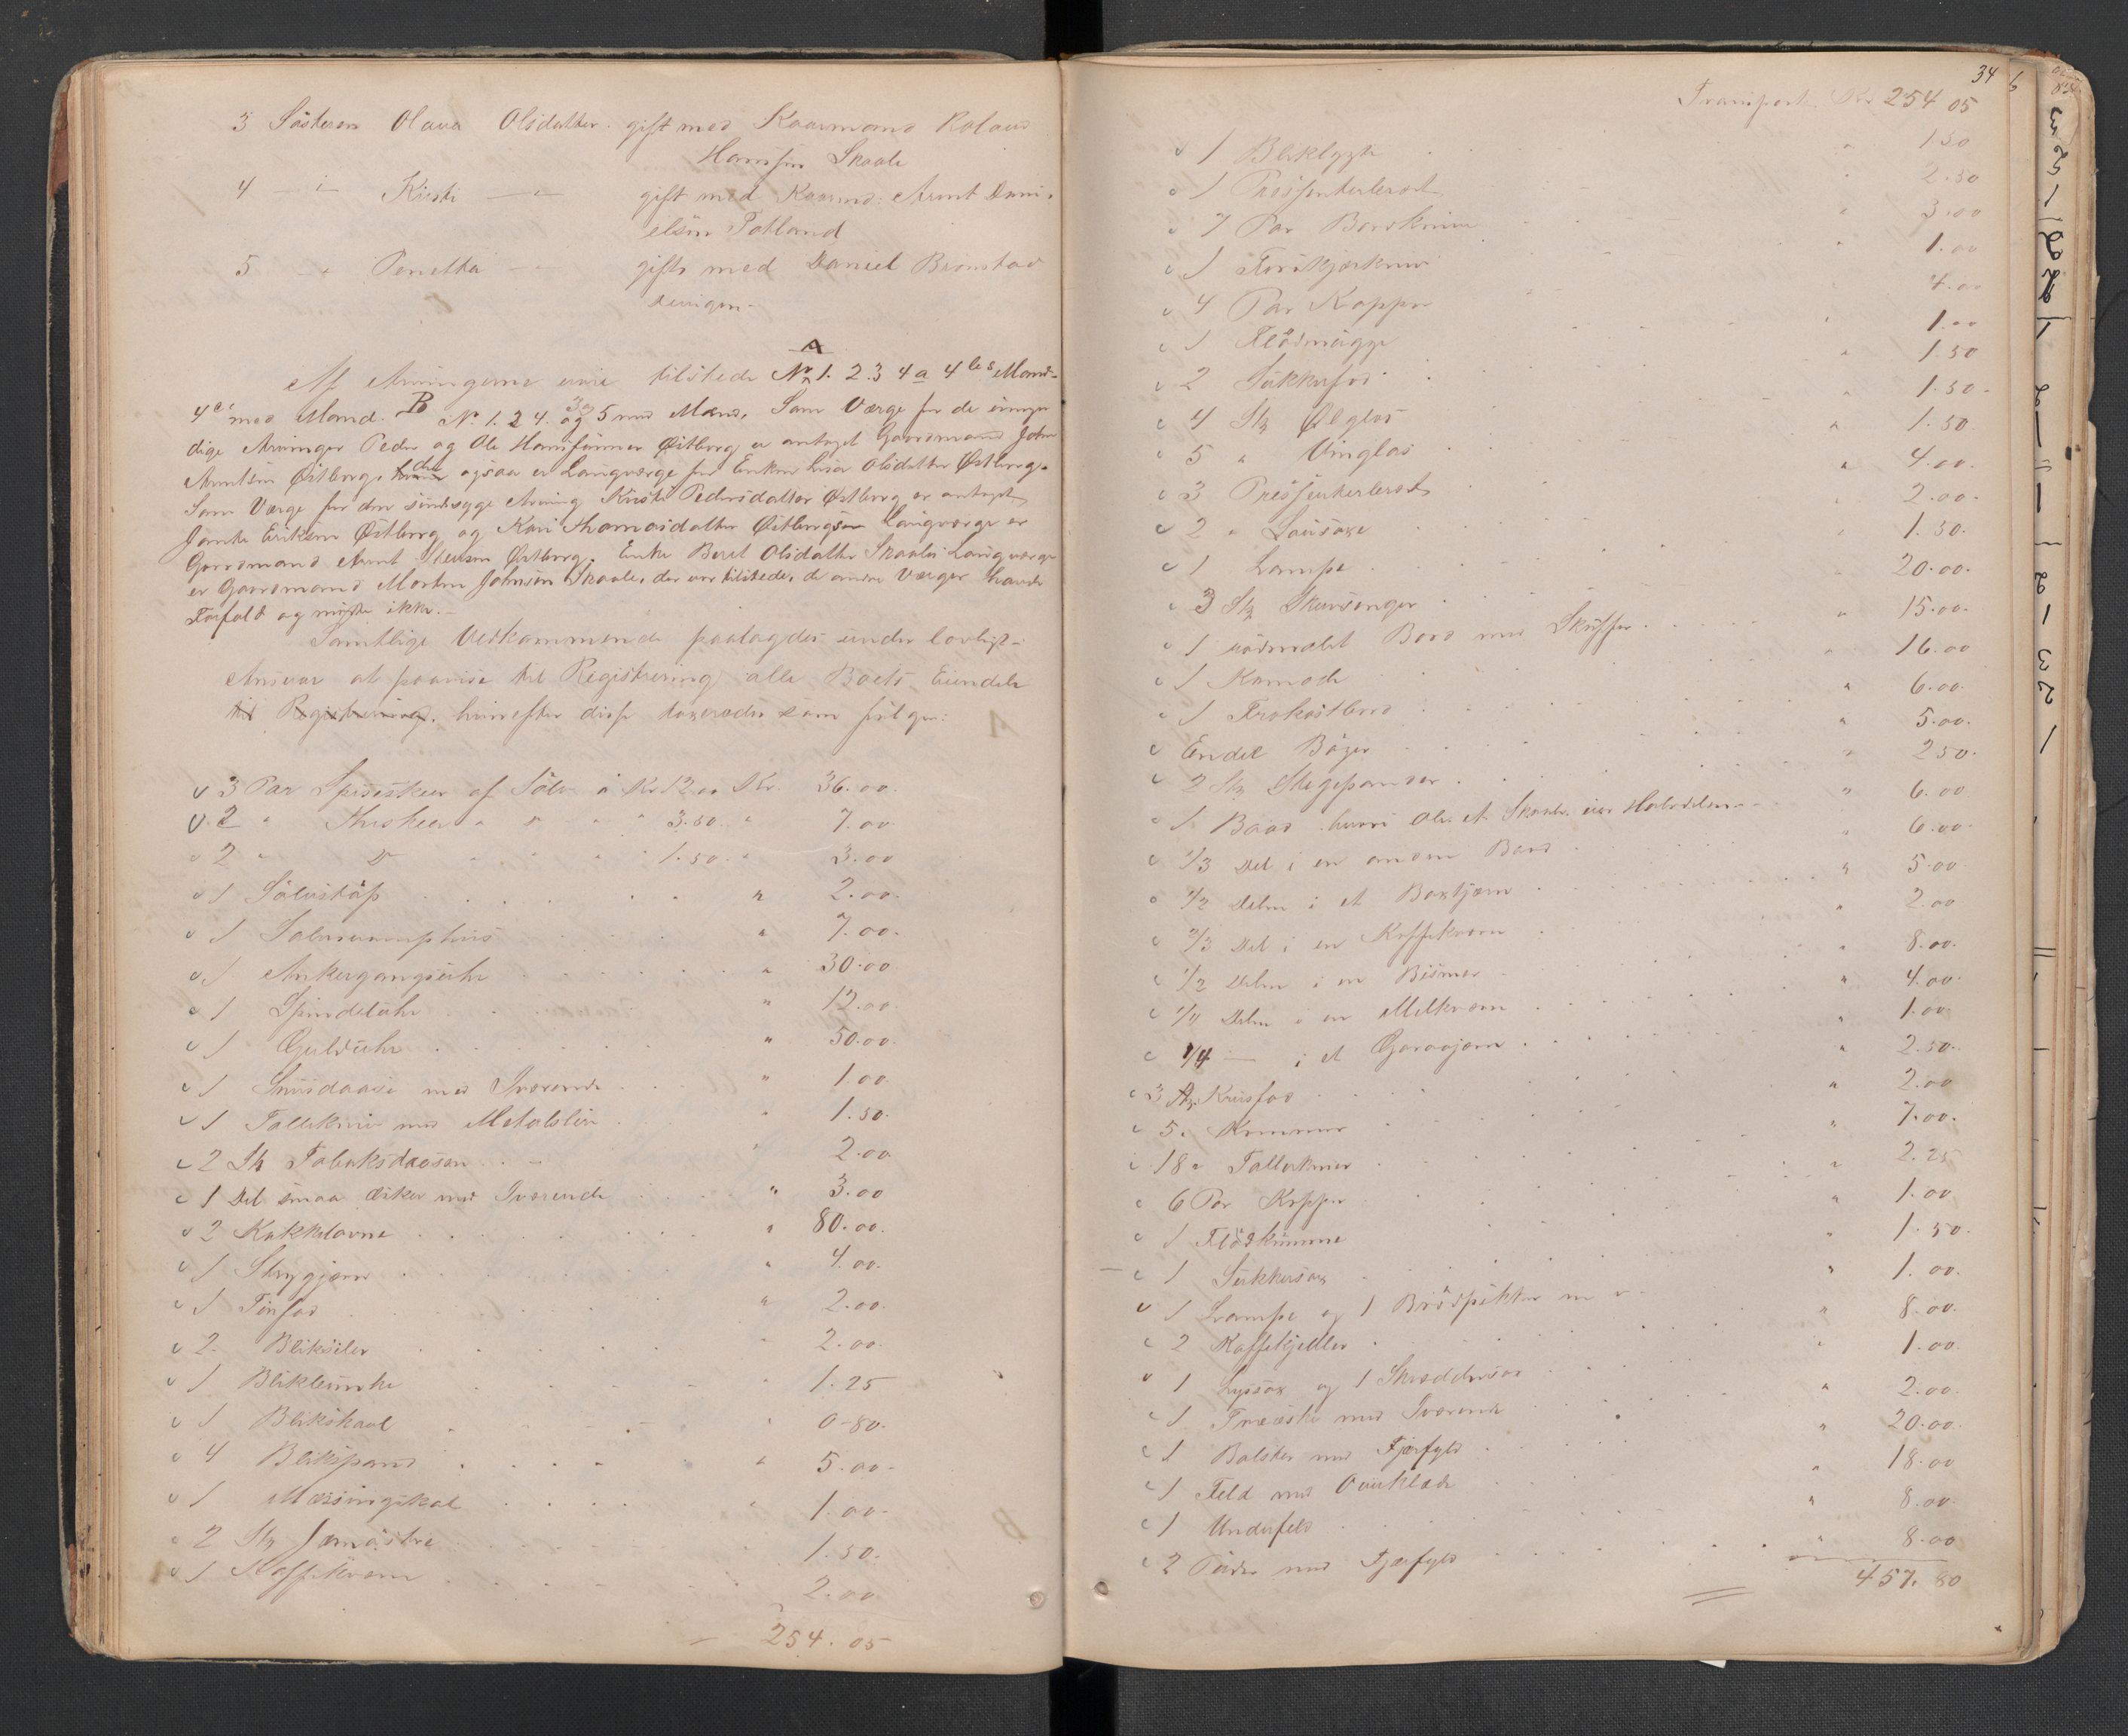 3 Søsteren Olava Olsdatter gift med Kaarmand Roland
Hansen Skaale
4 — " — Kirsti — " — gift med Kaarmd: Arnt Dani-
elsen Totland
5 — " Peretta — " — gift med Daniel Bronstad
Leungen.
Af Arvingerne vare tilstede A No 1. 2. 3 4 a 4 des Mand-
4 c med Mand. B No. 1. 2 4. 3 og 5 med Mand. Som Værge for de umyn
dige Arvinger Peder og Ole Hansønner Østborg er antaget Gaardmand John
Arntsen Østborg, der ogsaa er Laugværge for Enken Lisa Olsdatter Østborg.
Som Værge for den sindssyge Arving Kirsti Pedersdatter Østborg er antaget
Jonte Eriksen Østborg og Kari Thomasdatter Østborgs Laugværge er
Gaardmand Arnt Stensen Østborg. Enke Beret Olsdatter Skaales Laugværge
er Gaardmand Morten Johnsen Skaale, der var tilstede, de andre Værger havde
Forfald og mødte ikke.—
Samtlige Vedkommende paalagdes under lovligt-
Ansvar at paavise til Registrering alle Boets Eiendele
til Registrering, hvorefter disse taxeredes som følger:
3 Par Spiseskeer af Sølv à Kr 12.00 Kr. 36.00.
2 " Theskeer " " " " 3.50. " 7.00.
2 " Do " " " " 1.50. " 3.00
1 Sølvskaß " 2.00.
1 7.00.
1 Ankergangsuhr " 30.00
1 Spindeluhr " 12.00.
1 Gulduhr " 50.00.
1 Snusdaase med Iværende " 1.00.
1 Tollekniv med Metalslire " 1.50.
2 Stk Tobaksdaaser " 2.00
1 Del smaa Æsker med Iværende " 3.00
2 Kakkelovne " 80.00.
1 Strygjern " 4.00.
1 Tinfad " 2.00.
2 Bliksiler " 2.00.
1 1.25
1 Blikskaal " 0-80.
4 Blikspand " 5.00-
1 Messingikal " 1.00-
2 Stk 1.50.
1 Kaffekværn 2.00
254.05
34
Transport Kr 254 05
1 Bliklygte " 1.50
1 Præsenterbræt " 2.50
7 Par Bordknive " 3.00
1 Forskjærkniv " 1.00
4 Par Kopper 4.00
1 Flødmugge " 1.00
2 Sukkerfad " 1.50
4 Stk Ølglas 1.50-
5 " Vinglas " 1.50.
3 Præsenterbræt " 4.00.
2 " Sausaxe 2.00.
1 Lampe 1.50.
3 Stk Skuvsenger 20.00.
1 rødmalet Bord med Skuffer " 15.00.
1 Komode 16.00
1 Frokostbord " 6.00.
Endel Bøger " 5.00.
2 Stk Stegepander " 2 50.
1 Baad hvori Ole A. Skaale eier Halvdelen " 6.00
1/3 Del i en anden Baad 6.00.
1/2 Delen i et " 5.00
2/3 Del i en Kaffekværn " 2.00
1/2 Delen i en Bismer " 8.00.
1/4 Delen i en Melkværn " 4.00.
1/4 — i et 1.00
3 Stk. Krusfad " 2.50.
5. Kummer " 2.00
18 " Tallerkner " 7.00.
6 Par Kopper " 2.25
1 Flødkumme " 1.00
1 Sukkersax " 1.50.
1 Lampe og 1 Brødpikker m v. " 1.00.
2 Kaffekjedler " 8.00.
1 Lyssax og 1 Skreddersax " 1.00.
1 Træeske med Iværende " 2.00.
1 Bolster med Fjærfyld " 20.00.
1 Feld med Overklæde " 18.00
1 Underfeld " 8.00.
2 Puder med Fjærfyld " 8.00
457.80